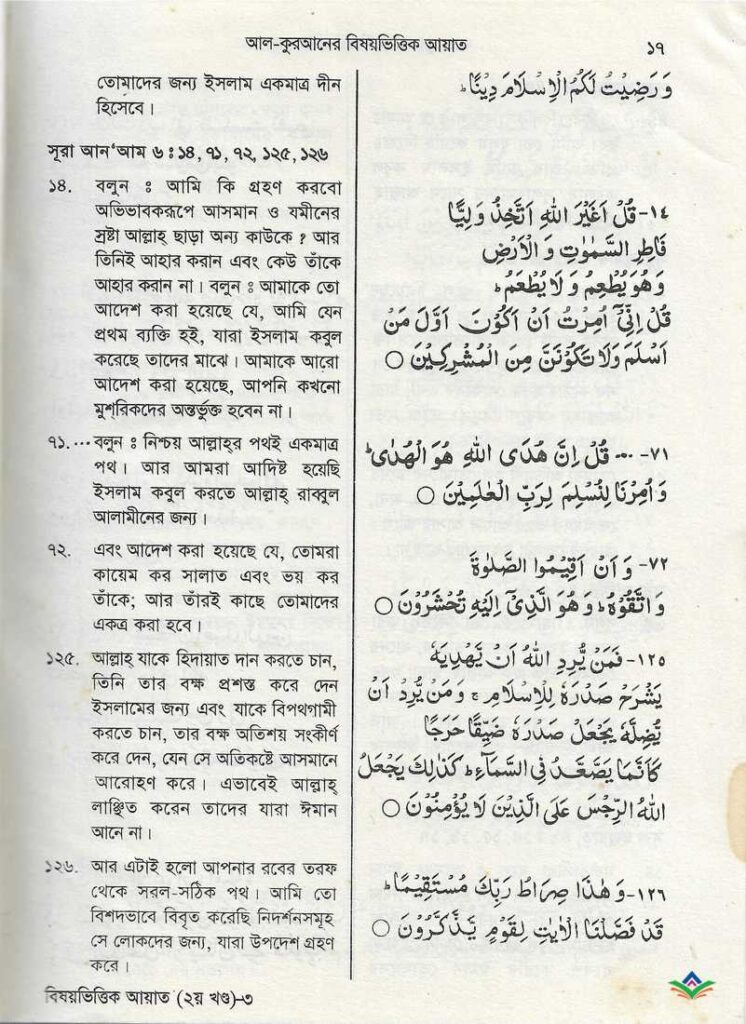 আল-কুরআনের বিষয়ভিত্তিক আয়াত ১৭
তোমাদের জন্য ইসলাম একমাত্র দীন
হিসেবে।
সূরা আন'আম ৬ : ১৪, ৭১, ৭২, ১২৫, ১২৬
১৪. বলুন : আমি কি গ্রহণ করবো
অভিভাবকরূপে আসমান ও যমীনের
স্রষ্টা আল্লাহ্ ছাড়া অন্য কাউকে ? আর
তিনিই আহার করান এবং কেউ তাঁকে
আহার করান না। বলুন : আমাকে তো
আদেশ করা হয়েছে যে, আমি যেন
প্রথম ব্যক্তি হই, যারা ইসলাম কবুল
করেছে তাদের মাঝে। আমাকে আরো
আদেশ করা হয়েছে, আপনি কখনো
মুশরিকদের অন্তর্ভুক্ত হবেন না।
৭১. ... বলুন : নিশ্চয় আল্লাহ্‌র পথই একমাত্র
পথ। আর আমরা আদিষ্ট হয়েছি
ইসলাম কবুল করতে আল্লাহ্ রাব্বুল
আলামীনের জন্য।
৭২. এবং আদেশ করা হয়েছে যে, তোমরা
কায়েম কর সালাত এবং ভয় কর
তাঁকে; আর তাঁরই কাছে তোমাদের
একত্র করা হবে।
১২৫. আল্লাহ্ যাকে হিদায়াত দান করতে চান,
তিনি তার বক্ষ প্রশস্ত করে দেন
ইসলামের জন্য এবং যাকে বিপথগামী
করতে চান, তার বক্ষ অতিশয় সংকীর্ণ
করে দেন, যেন সে অতিকষ্টে আসমানে
আরোহণ করে। এভাবেই আল্লাহ্
লাঞ্ছিত করেন তাদের যারা ঈমান
আনে না।
১২৬. আর এটাই হলো আপনার রবের তরফ
থেকে সরল-সঠিক পথ। আমি তো
বিশদভাবে বিবৃত করেছি নিদর্শনসমূহ
সে লোকদের জন্য, যারা উপদেশ গ্রহণ
করে।
وَرَضِيْتُ لَكُمُ الْاِسْلَامَ دِيْنًا ؕ
١٤- قُلْ اَغَيْرَ اللهِ اَتَّخِذُ وَلِيًّا
فَاطِرِ السَّمٰوٰتِ وَ الْاَرْضِ
وَهُوَ يُطْعِمُ وَ لَا يُطْعَمُ ؕ
قُلْ اِنِّيْۤ اُمِرْتُ اَنْ اَكُوْنَ اَوَّلَ مَنْ
اَسْلَمَ وَلَا تَكُوْنَنَّ مِنَ الْمُشْرِكِيْنَ ○
٧١- ... قُلْ اِنَّ هُدَى اللهِ هُوَ الْهُدٰى ؕ
وَ اُمِرْنَا لِنُسْلِمَ لِرَبِّ الْعٰلَمِيْنَ ○
٧٢- وَ اَنْ اَقِيْمُوا الصَّلٰوةَ
وَ اتَّقُوْهُ ؕ وَ هُوَ الَّذِيْۤ اِلَيْهِ تُحْشَرُوْنَ ○
١٢٥- فَمَنْ يُّرِدِ اللهُ اَنْ يَّهْدِيَهٗ
يَشْرَحْ صَدْرَهٗ لِلْاِسْلَامِ ۚ وَ مَنْ يُّرِدْ اَنْ
يُّضِلَّهٗ يَجْعَلْ صَدْرَهٗ ضَيِّقًا حَرَجًا
كَاَنَّمَا يَصَّعَّدُ فِي السَّمَآءِ ؕ كَذٰلِكَ يَجْعَلُ
اللهُ الرِّجْسَ عَلَى الَّذِيْنَ لَا يُؤْمِنُوْنَ ○
١٢٦- وَ هٰذَا صِرَاطُ رَبِّكَ مُسْتَقِيْمًا ؕ
قَدْ فَصَّلْنَا الْاٰيٰتِ لِقَوْمٍ يَّذَّكَّرُوْنَ ○
বিষয়ভিত্তিক আয়াত (২য় খণ্ড)-৩